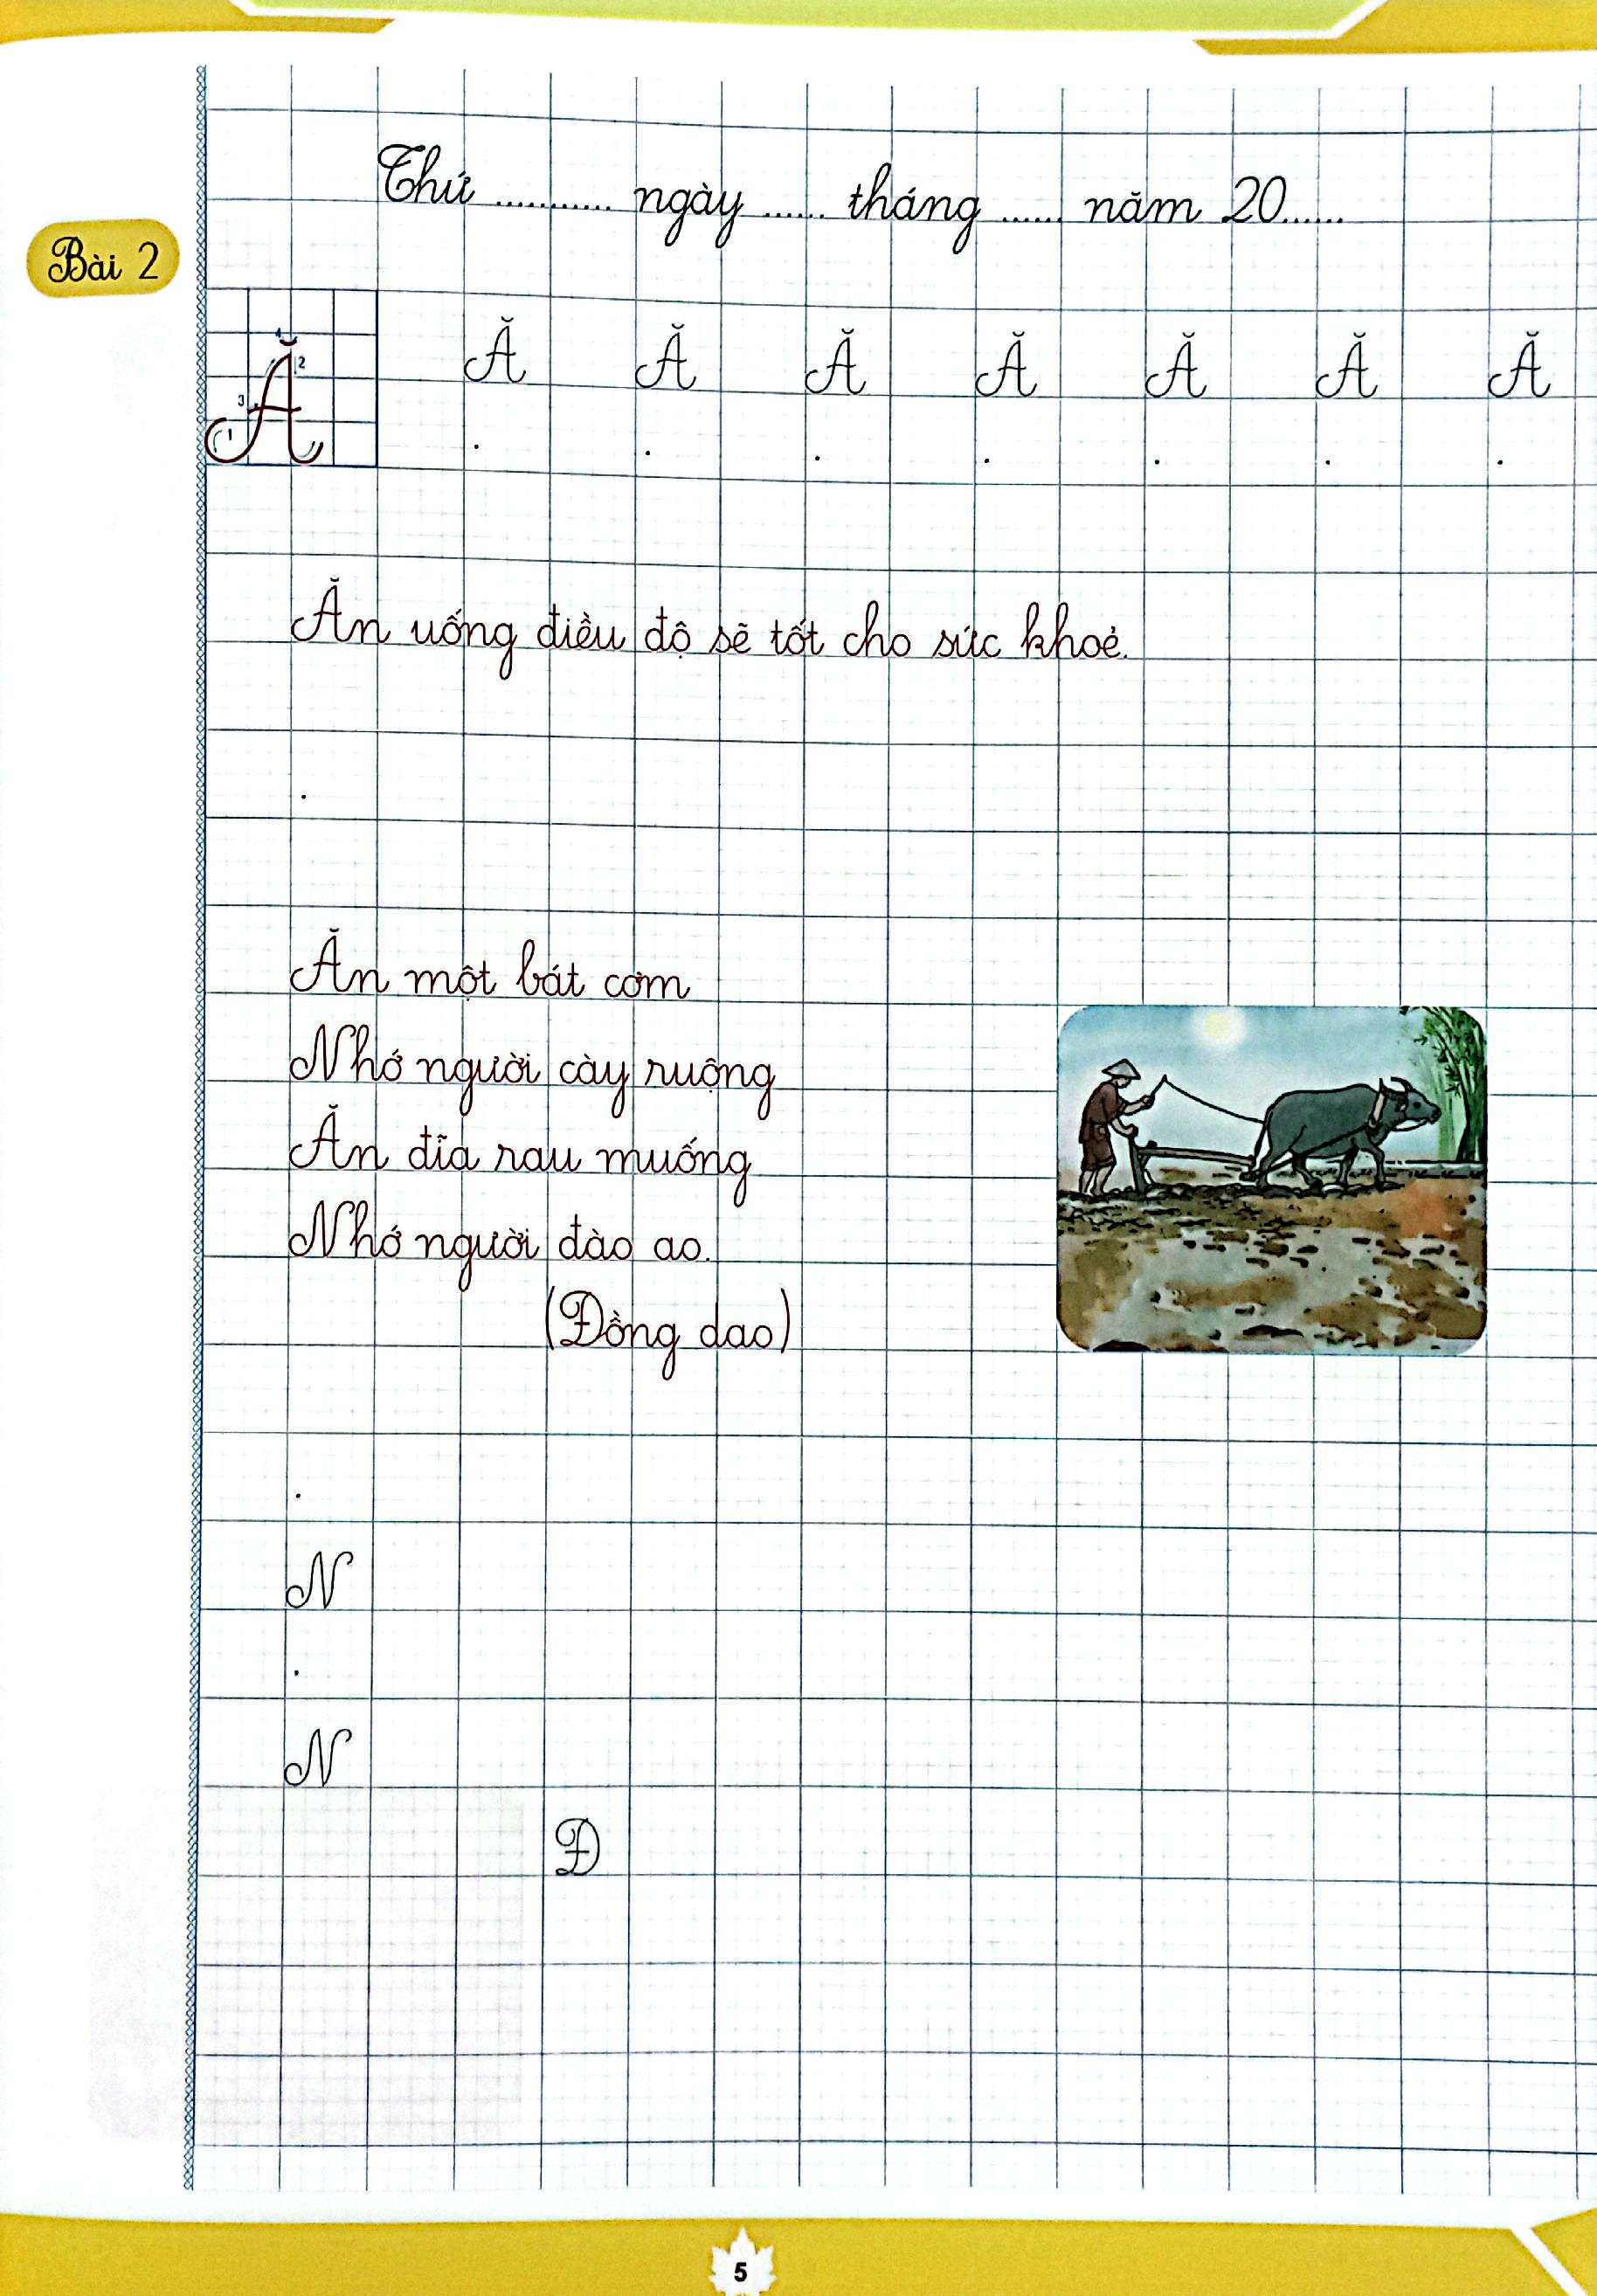 Thứ ........... ngày ...... tháng ...... năm 20......
Bài 2
Ă Ă Ă Ă Ă Ă Ă Ă
4
2
3
1
. . . . . . .
Ăn uống điều độ sẽ tốt cho sức khoẻ.
.
Ăn một bát cơm
Nhớ người cày ruộng
Ăn đĩa rau muống
Nhớ người đào ao.
(Đồng dao)
.
N
.
N
Đ
5